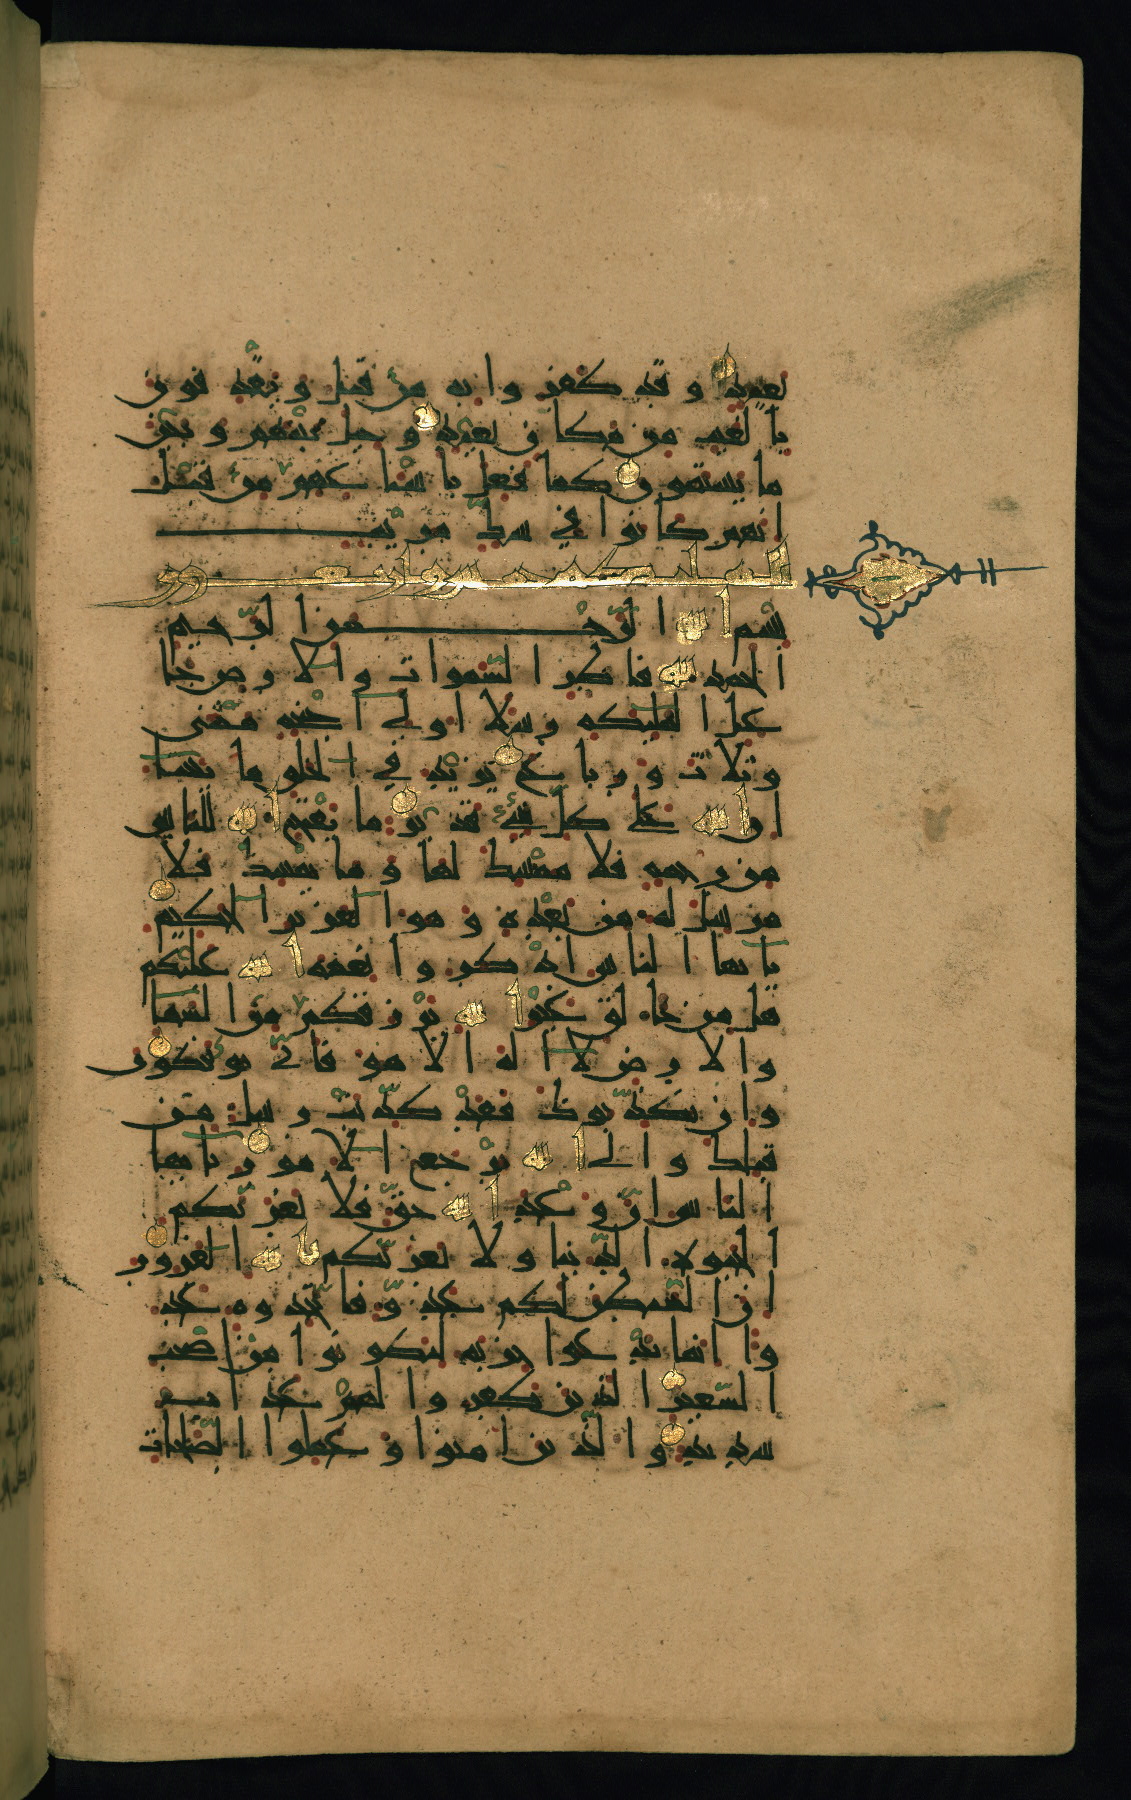 بعيد وقد كفروا به من قبل ويقذفون
بالغيب من مكان بعيد وحيل بينهم وبين
ما يشتهون كما فعل باشياعهم من قبل
انهم كانوا في شك مريب
الملئكة
بسم الله الرحمن الرحيم
الحمد لله فاطر السموات والارض جا
عل الملئكة رسلا اولي اجنحة مثنى
وثلاث ورباع يزيد في الخلق ما يشا
ان الله على كل شيء قدير ما يفتح الله للناس
من رحمة فلا ممسك لها وما يمسك فلا
مرسل له من بعده وهو العزيز الحكيم
يايها الناس اذكروا نعمة الله عليكم
هل من خالق غير الله يرزقكم من السما
والارض لا اله الا هو فانى توفكون
وان يكذبوك فقد كذبت رسل من
قبلك والى الله ترجع الامور يايها
الناس ان وعد الله حق فلا تغرنكم
الحيوة الدنيا ولا يغرنكم بالله الغرور
ان الشيطن لكم عدو فاتخذوه عد
وا انما يدعوا حزبه ليكونوا من اصحب
السعير الذين كفروا لهم عذاب
شديد والذين امنوا وعملوا الصلحات